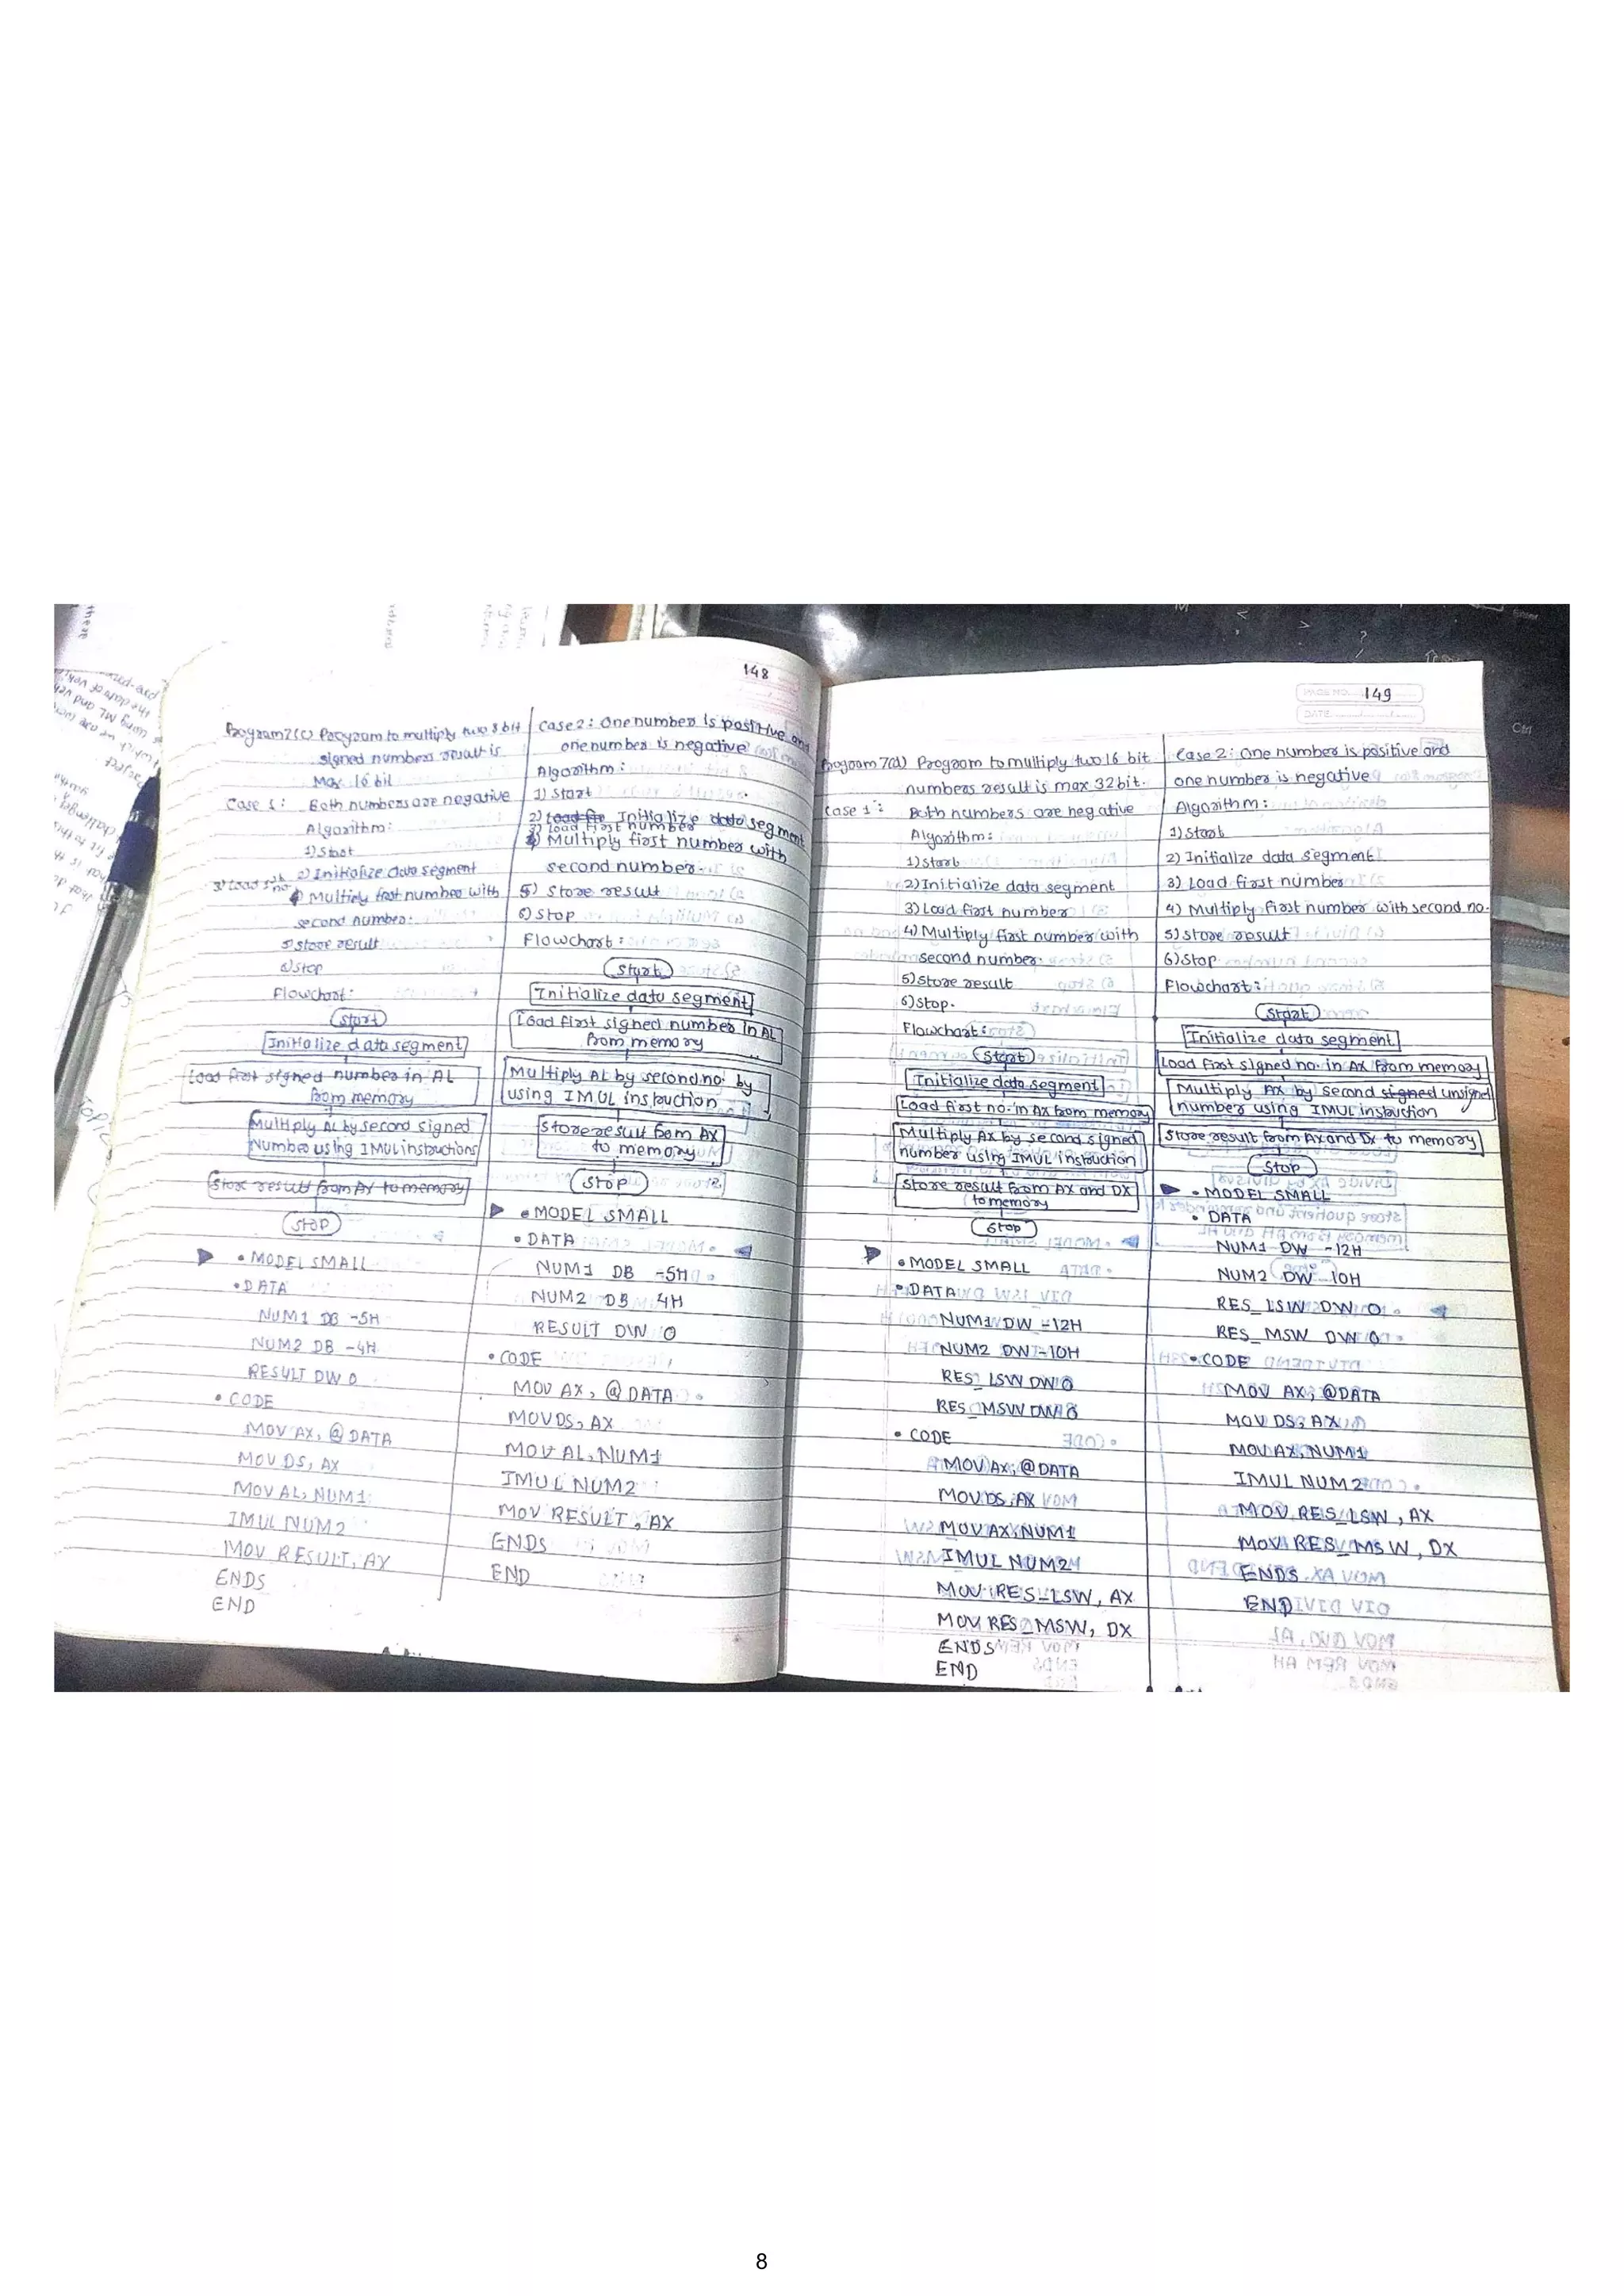 148
Program 7(c) Program to multiply two 8 bit
signed numbers result is
Max 16 bit
Case 1: Both numbers are negative
Algorithm:
1) Start
2) Initialize data segment
3) Load 1st no
4) Multiply first number with
second number.
5) Store result
6) Stop
Flowchart:
Start
Initialize data segment
Load first signed number in AL
from memory
Multiply AL by second signed
Number using IMUL instructions
Store result from AX to memory
Stop
.MODEL SMALL
.DATA
NUM1 DB -5H
NUM2 DB -4H
RESULT DW 0
.CODE
MOV AX, @DATA
MOV DS, AX
MOV AL, NUM1
IMUL NUM2
MOV RESULT, AX
ENDS
END
Case 2: One number is positive and
one number is negative
Algorithm:
1) Start
2) Initialize data segment
3) Load first number
4) Multiply first number with
second number.
5) Store result
6) Stop
Flowchart:
Start
Initialize data segment
Load first signed number in AL
from memory
Multiply AL by second no. by
using IMUL instruction
Store result from AX
to memory
Stop
.MODEL SMALL
.DATA
NUM1 DB -5H
NUM2 DB 4H
RESULT DW 0
.CODE
MOV AX, @DATA
MOV DS, AX
MOV AL, NUM1
IMUL NUM2
MOV RESULT, AX
ENDS
END
PAGE NO. 149
DATE
Program 7(d) Program to multiply two 16 bit
numbers result is max 32 bit.
Case 1: Both numbers are negative
Algorithm:
1) Start
2) Initialize data segment
3) Load first number
4) Multiply first number with
second number.
5) Store result
6) Stop.
Flowchart:
Start
Initialize data segment
Load first no. in AX from memory
Multiply AX by second signed
number using IMUL instruction
Store result from AX and DX
to memory
Stop
.MODEL SMALL
.DATA
NUM1 DW -12H
NUM2 DW -10H
RES_LSW DW 0
RES_MSW DW 0
.CODE
MOV AX, @DATA
MOV DS, AX
MOV AX, NUM1
IMUL NUM2
MOV RES_LSW, AX
MOV RES_MSW, DX
ENDS
END
Case 2: One number is positive and
one number is negative
Algorithm:
1) Start
2) Initialize data segment
3) Load first number
4) Multiply first number with second no.
5) Store result
6) Stop
Flowchart:
Start
Initialize data segment
Load First signed no. in AX from memory
Multiply AX by second signed unsigned
number using IMUL instruction
Store result from AX and DX to memory
Stop
.MODEL SMALL
.DATA
NUM1 DW -12H
NUM2 DW 10H
RES_LSW DW 0
RES_MSW DW 0
.CODE
MOV AX, @DATA
MOV DS, AX
MOV AX, NUM1
IMUL NUM2
MOV RES_LSW, AX
MOV RES_MSW, DX
ENDS
END
8